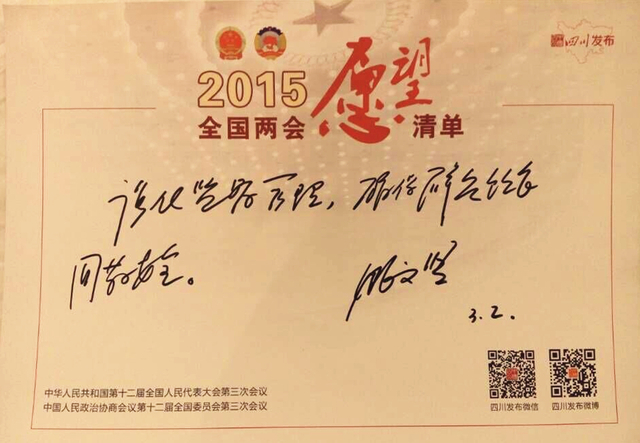 2015 愿望
全国两会 清单
四川发布
强化监督管理，确保群众饮食
用药安全。
3.2.
中华人民共和国第十二届全国人民代表大会第三次会议
中国人民政治协商会议第十二届全国委员会第三次会议
四川发布微信 四川发布微博